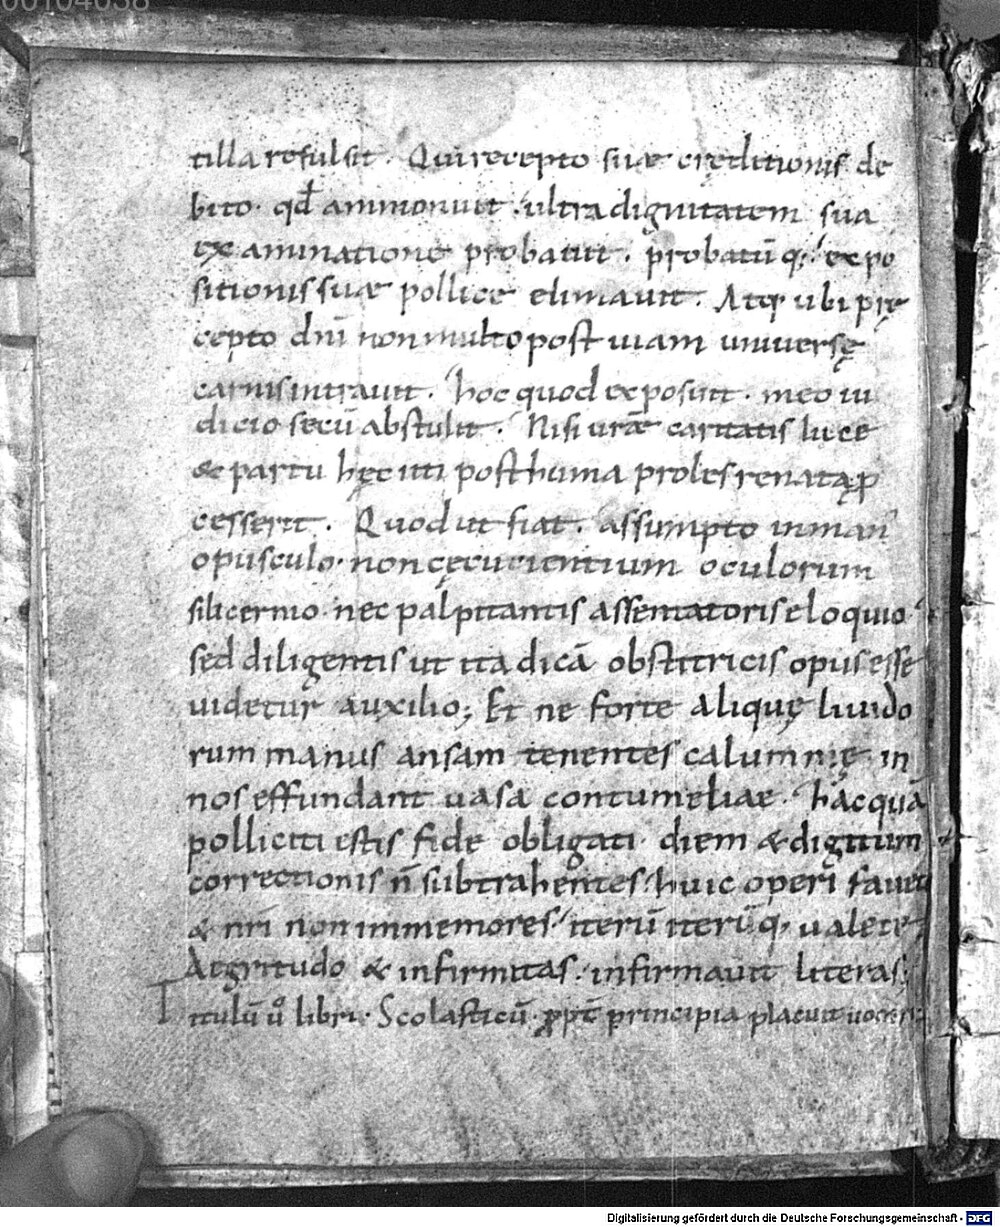 00104038
tilla refulsit. Qui recepto suae creditionis de
bito. qđ ammonuit. ultra dignitatem sua
examinatione probauit. probatū q; expo
sitionis suae pollice elimauit. At ubi prę
cepto dn̄i non multo post uiam uniuersę
carnis intrauit. hoc quod exposuit. meo iu
dicio secū abstulit. Nisi urāe caritatis luce
& partu hęc iti posthuma proles renata ꝓ
cesserit. Quod ut fiat. assumpto in man
opusculo. non cęcucientium oculorum
silicernio. nec palpitantis assentatoris eloquio.
sed diligentis ut ita dicā obstetricis opus esse
uidetur auxilio; Et ne forte aliquę liuido
rum manus ansam tenentes calumnię in
nos effundant uasa contumeliae. hāc quā
polliciti estis fide obligati diem & digitum
correctionis n̄ subtrahentes. huic operi fauete
& nr̄i non immemores. iterū iterūq; ualete.
Aegritudo & infirmitas. infirmauit literas;
Titulū ů libri. Scolasticū. ꝓpt̄ principia placuit
Digitalisierung gefördert durch die Deutsche Forschungsgemeinschaft - DFG